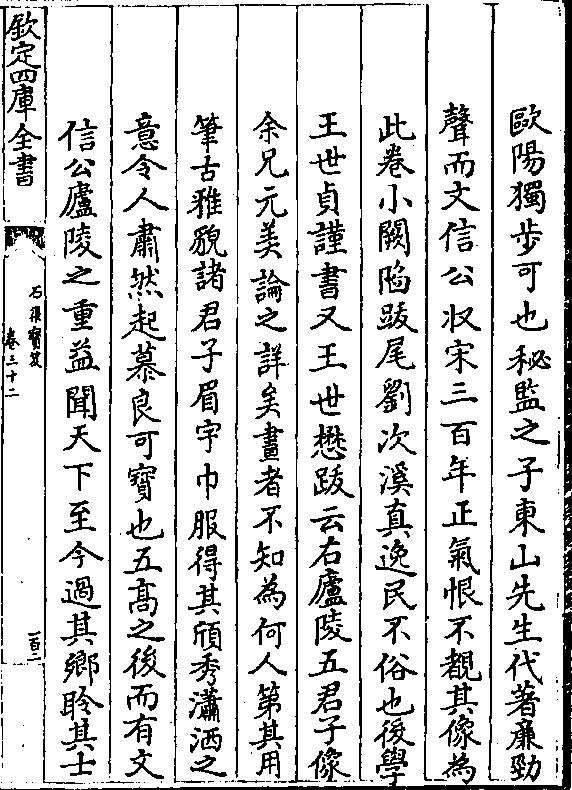 歐陽獨步可也秘監之子東山先生代著亷勁
聲而文信公収宋三百年正氣恨不覩其像為
此卷小闕䧟䟦尾劉次溪真逸民不俗也後學
王世貞謹書又王世懋䟦云右廬陵五君子像
余兄元美論之詳矣畫者不知為何人第其用
筆古雅貌諸君子眉宇巾服得其頎秀瀟洒之
意令人肅然起慕良可寳也五髙之後而有文
信公廬陵之重益聞天下至今過其鄉聆其士
欽定四庫全書
石渠寳笈
卷三十二
一百二